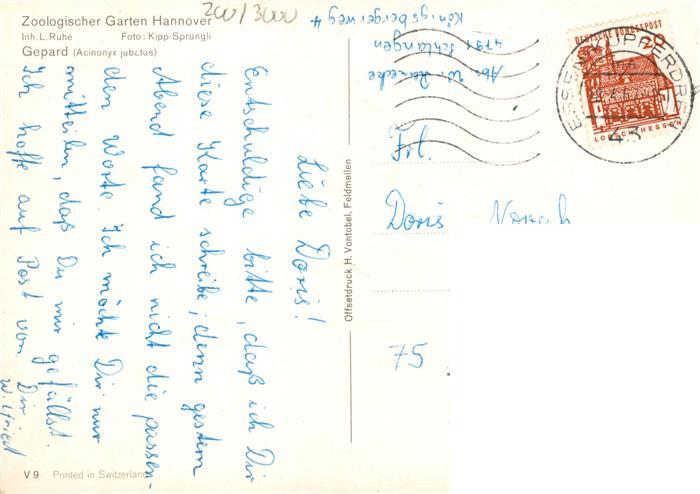 Zoologischer Garten Hannover
Inh. L. Ruhe Foto: Kipp-Sprüngli
Gepard (Acinonyx jubatus)
200/3000
Liebe Doris!
Entschuldige bitte, daß ich Dir
diese Karte schreibe; denn gestern
Abend fand ich nicht die passen-
den Worte. Ich möchte Dir nur
mitteilen, daß Du mir gefällst.
Ich hoffe auf Post von Dir
W.
V 9 Printed in Switzerland
Offsetdruck H. Vontobel, Feldmeilen
Abs. W. Reinecke
4791 Schlangen
Königsbergerweg 4
DEUTSCHE BUNDESPOST
20
LORSCH/HESSEN
ESSEN-KUPFERDREH
43
Frl.
Doris
75